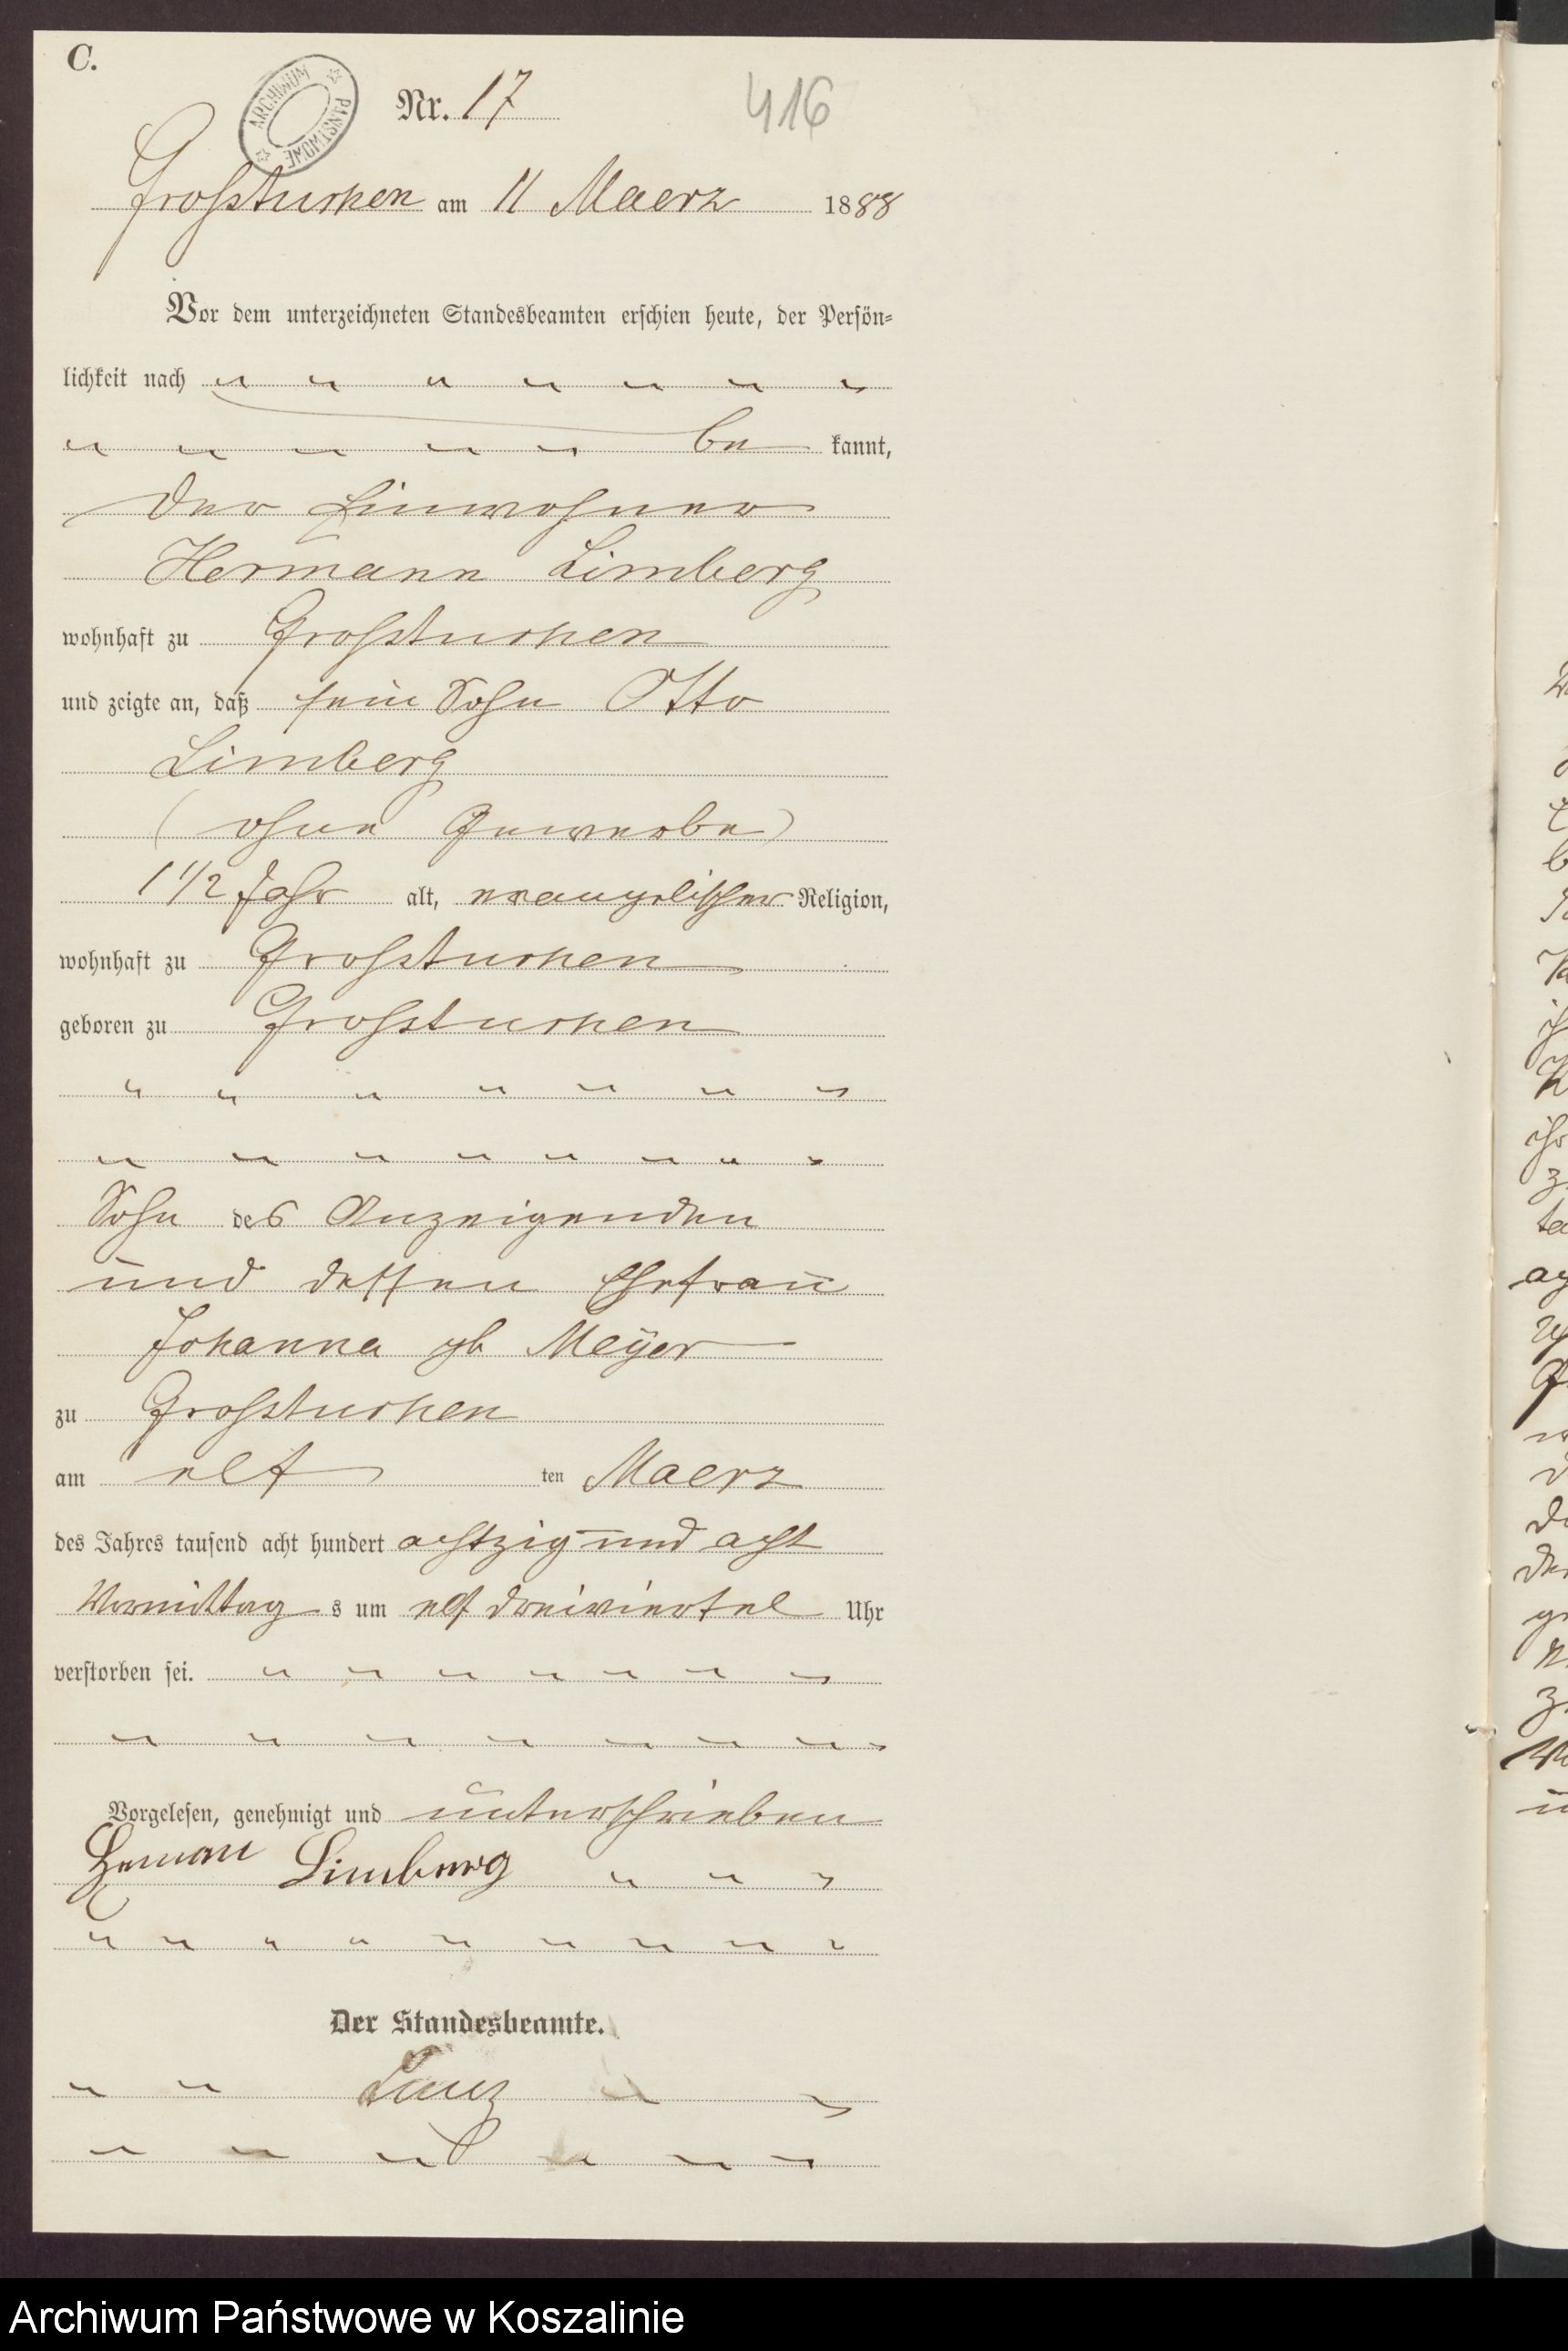 C.
ARCHIWUM PAŃSTWOWE
Nr. 17
416
Grossturhen am 11 Maerz 1888
Vor dem unterzeichneten Standesbeamten erschien heute, der Persön-
lichkeit nach
be kannt,
der Einwohner
Hermann Limberg
wohnhaft zu Großturhen
und zeigte an, daß sein Sohn Otto
Limberg
(ohne Gewerbe)
1 1/2 Jahr alt, evangelischer Religion,
wohnhaft zu Großturhen
geboren zu Großturhen
Sohn des Anzeigenden
und dessen Ehefrau
Johanna gb Meÿer
zu Großturhen
am elf ten Maerz
des Jahres tausend acht hundert achtzig und acht
Vormittag s um elf dreiviertel Uhr
verstorben sei.
Vorgelesen, genehmigt und unterschrieben
Herman Limberg
Der Standesbeamte.
Archiwum Państwowe w Koszalinie